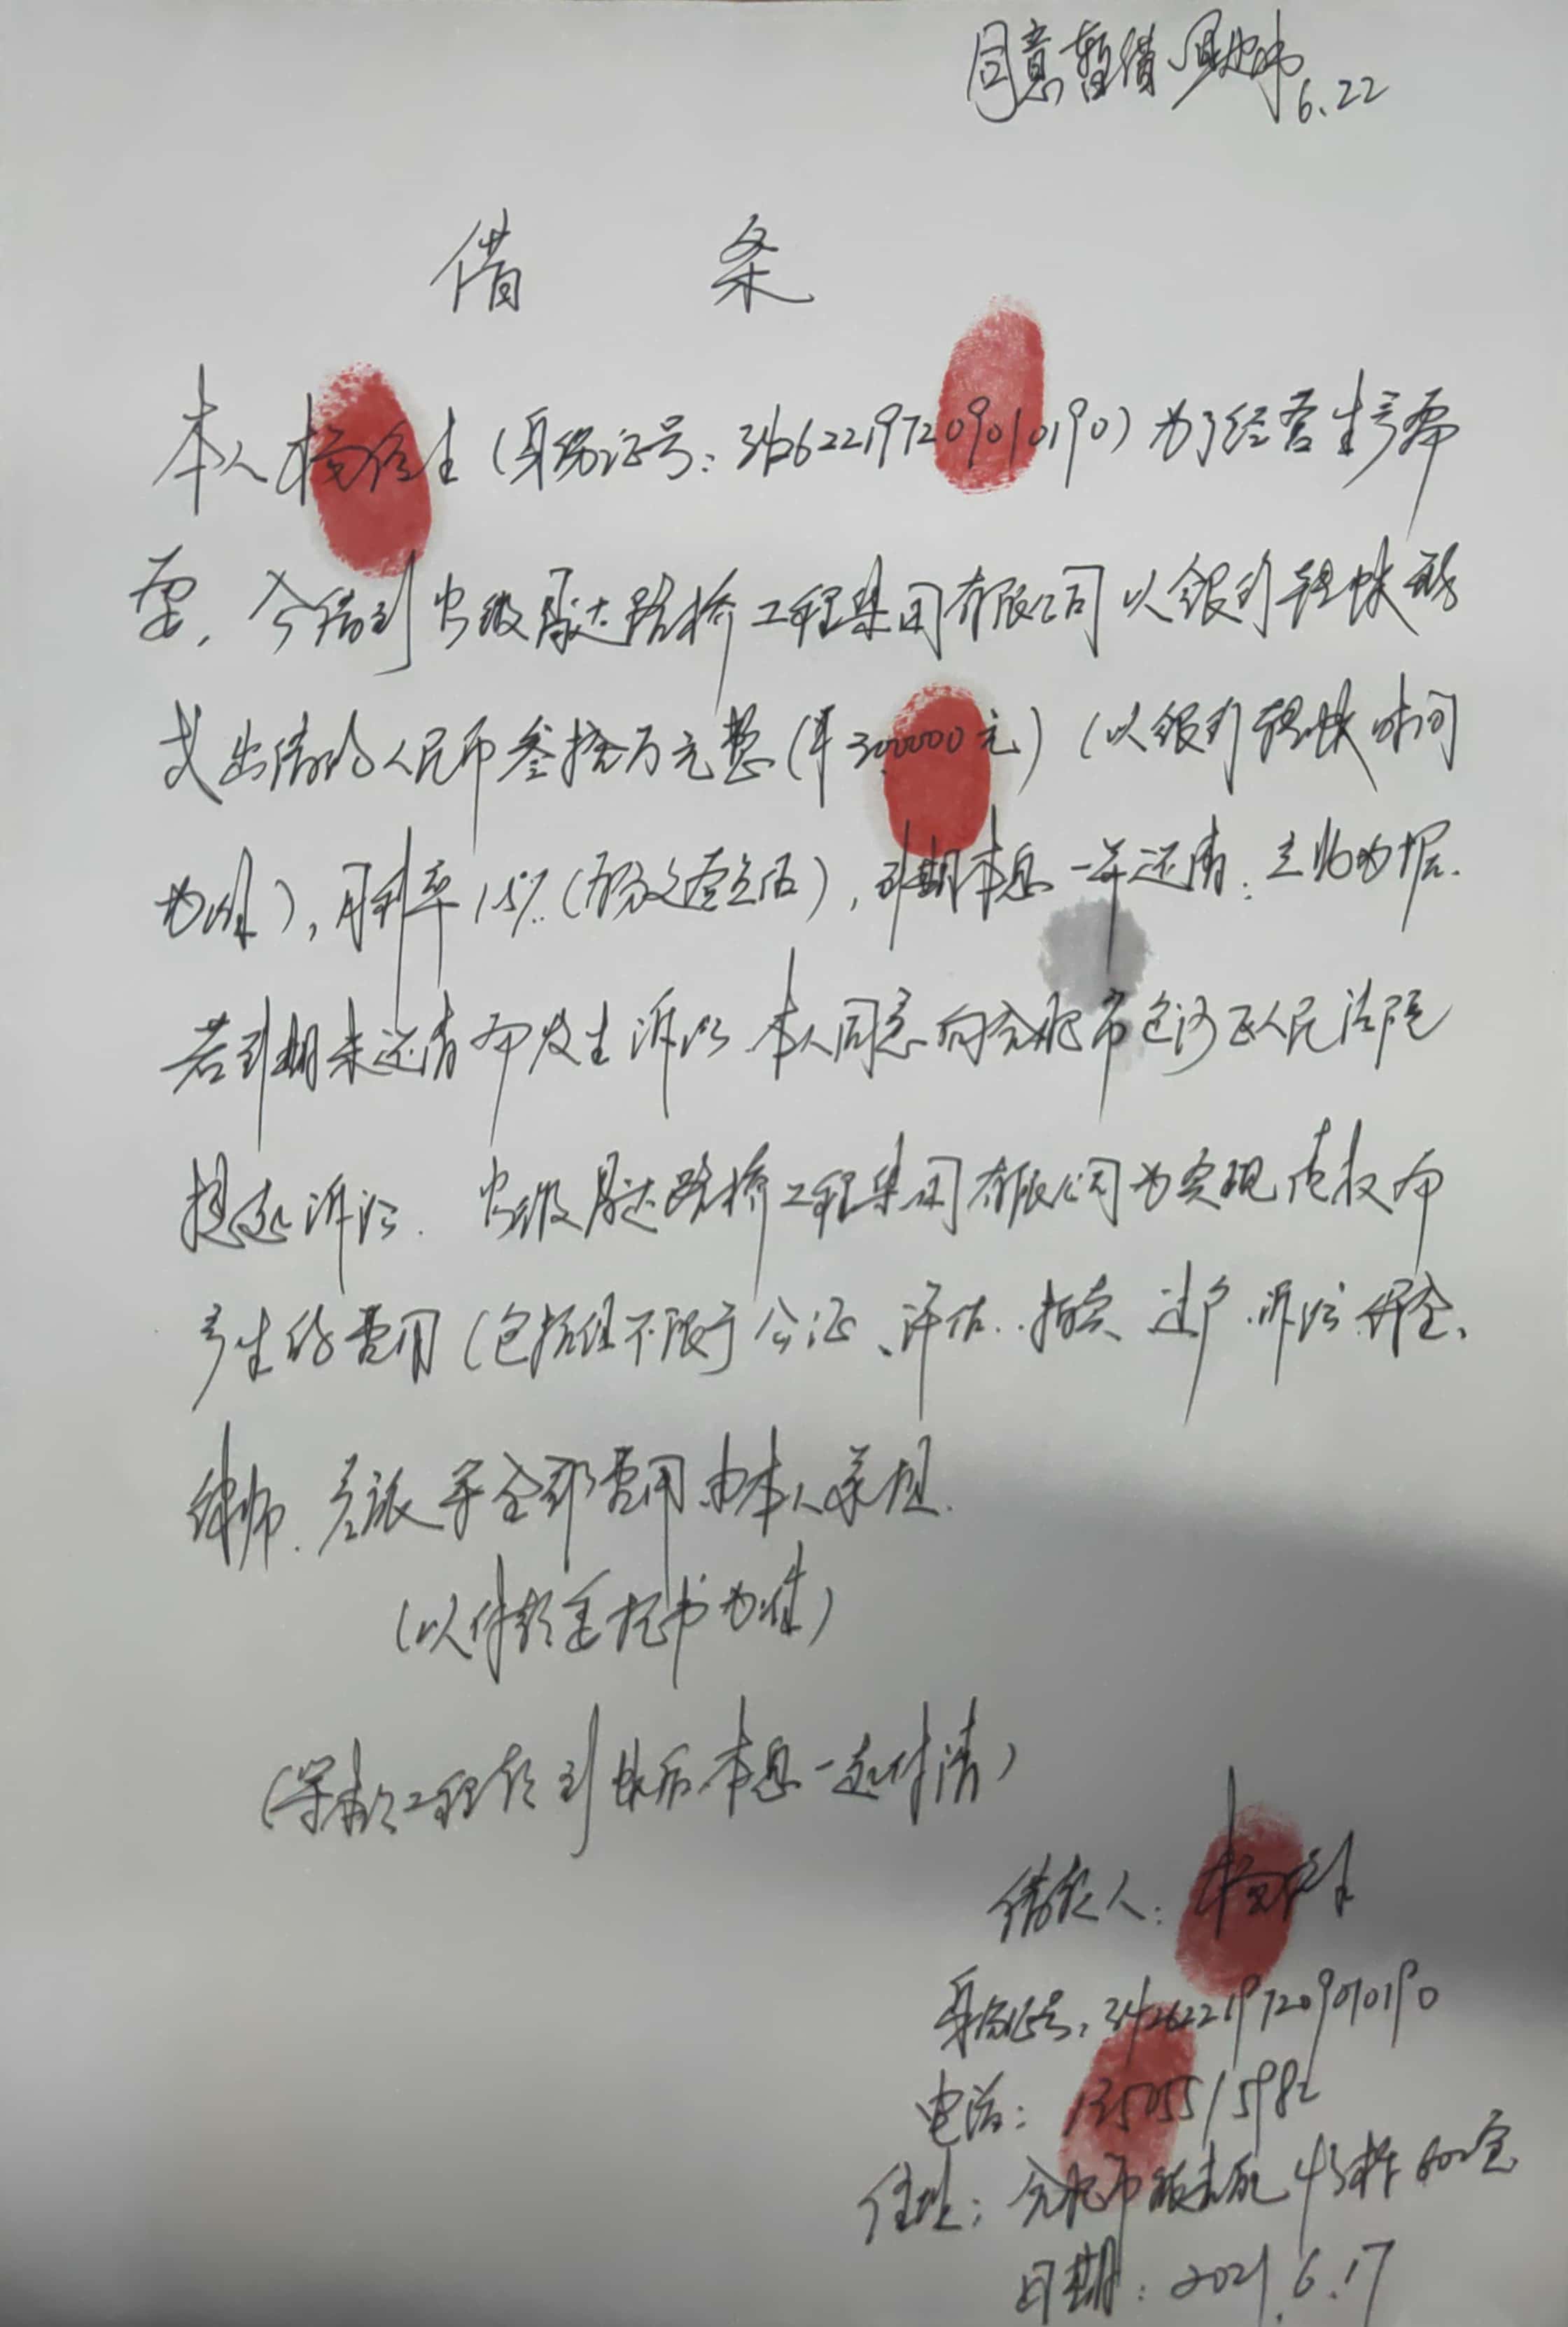 同意暂借 6.22
借 条
本人杨 生(身份证号:342622197209010190)为了经营生产需
要,今借到安徽 达路桥工程集团有限公司以银行转账形
式出借的人民币叁拾万元整(¥300000元)(以银行转账时间
为准),月利率1.5%(百分之壹点伍),到期本息一并还清.立此为据.
若到期未还清而发生诉讼 本人同意向合肥市包河区人民法院
提起诉讼. 安徽 达路桥工程集团有限公司为实现债权而
产生的费用(包括但不限于公证、评估、拍卖、过户、诉讼、保全、
律师、差旅等全部费用由本人承担.
(以付款委托书为准)
( 工程款到账后本息一起付清)
借款人:杨 生
身份证号:342622197209010190
电话:13505515982
住址:合肥市 4 602室
日期:2021.6.17